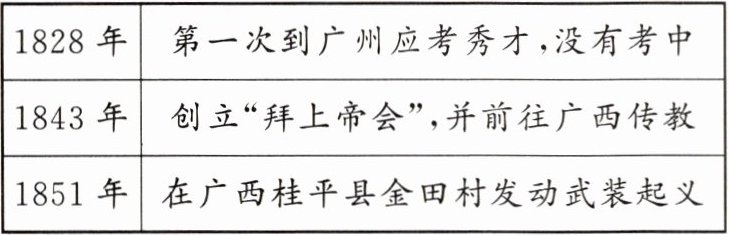 1828 年 第一次到广州应考秀才,没有考中
1843 年 创立“拜上帝会”,并前往广西传教
1851 年 在广西桂平县金田村发动武装起义